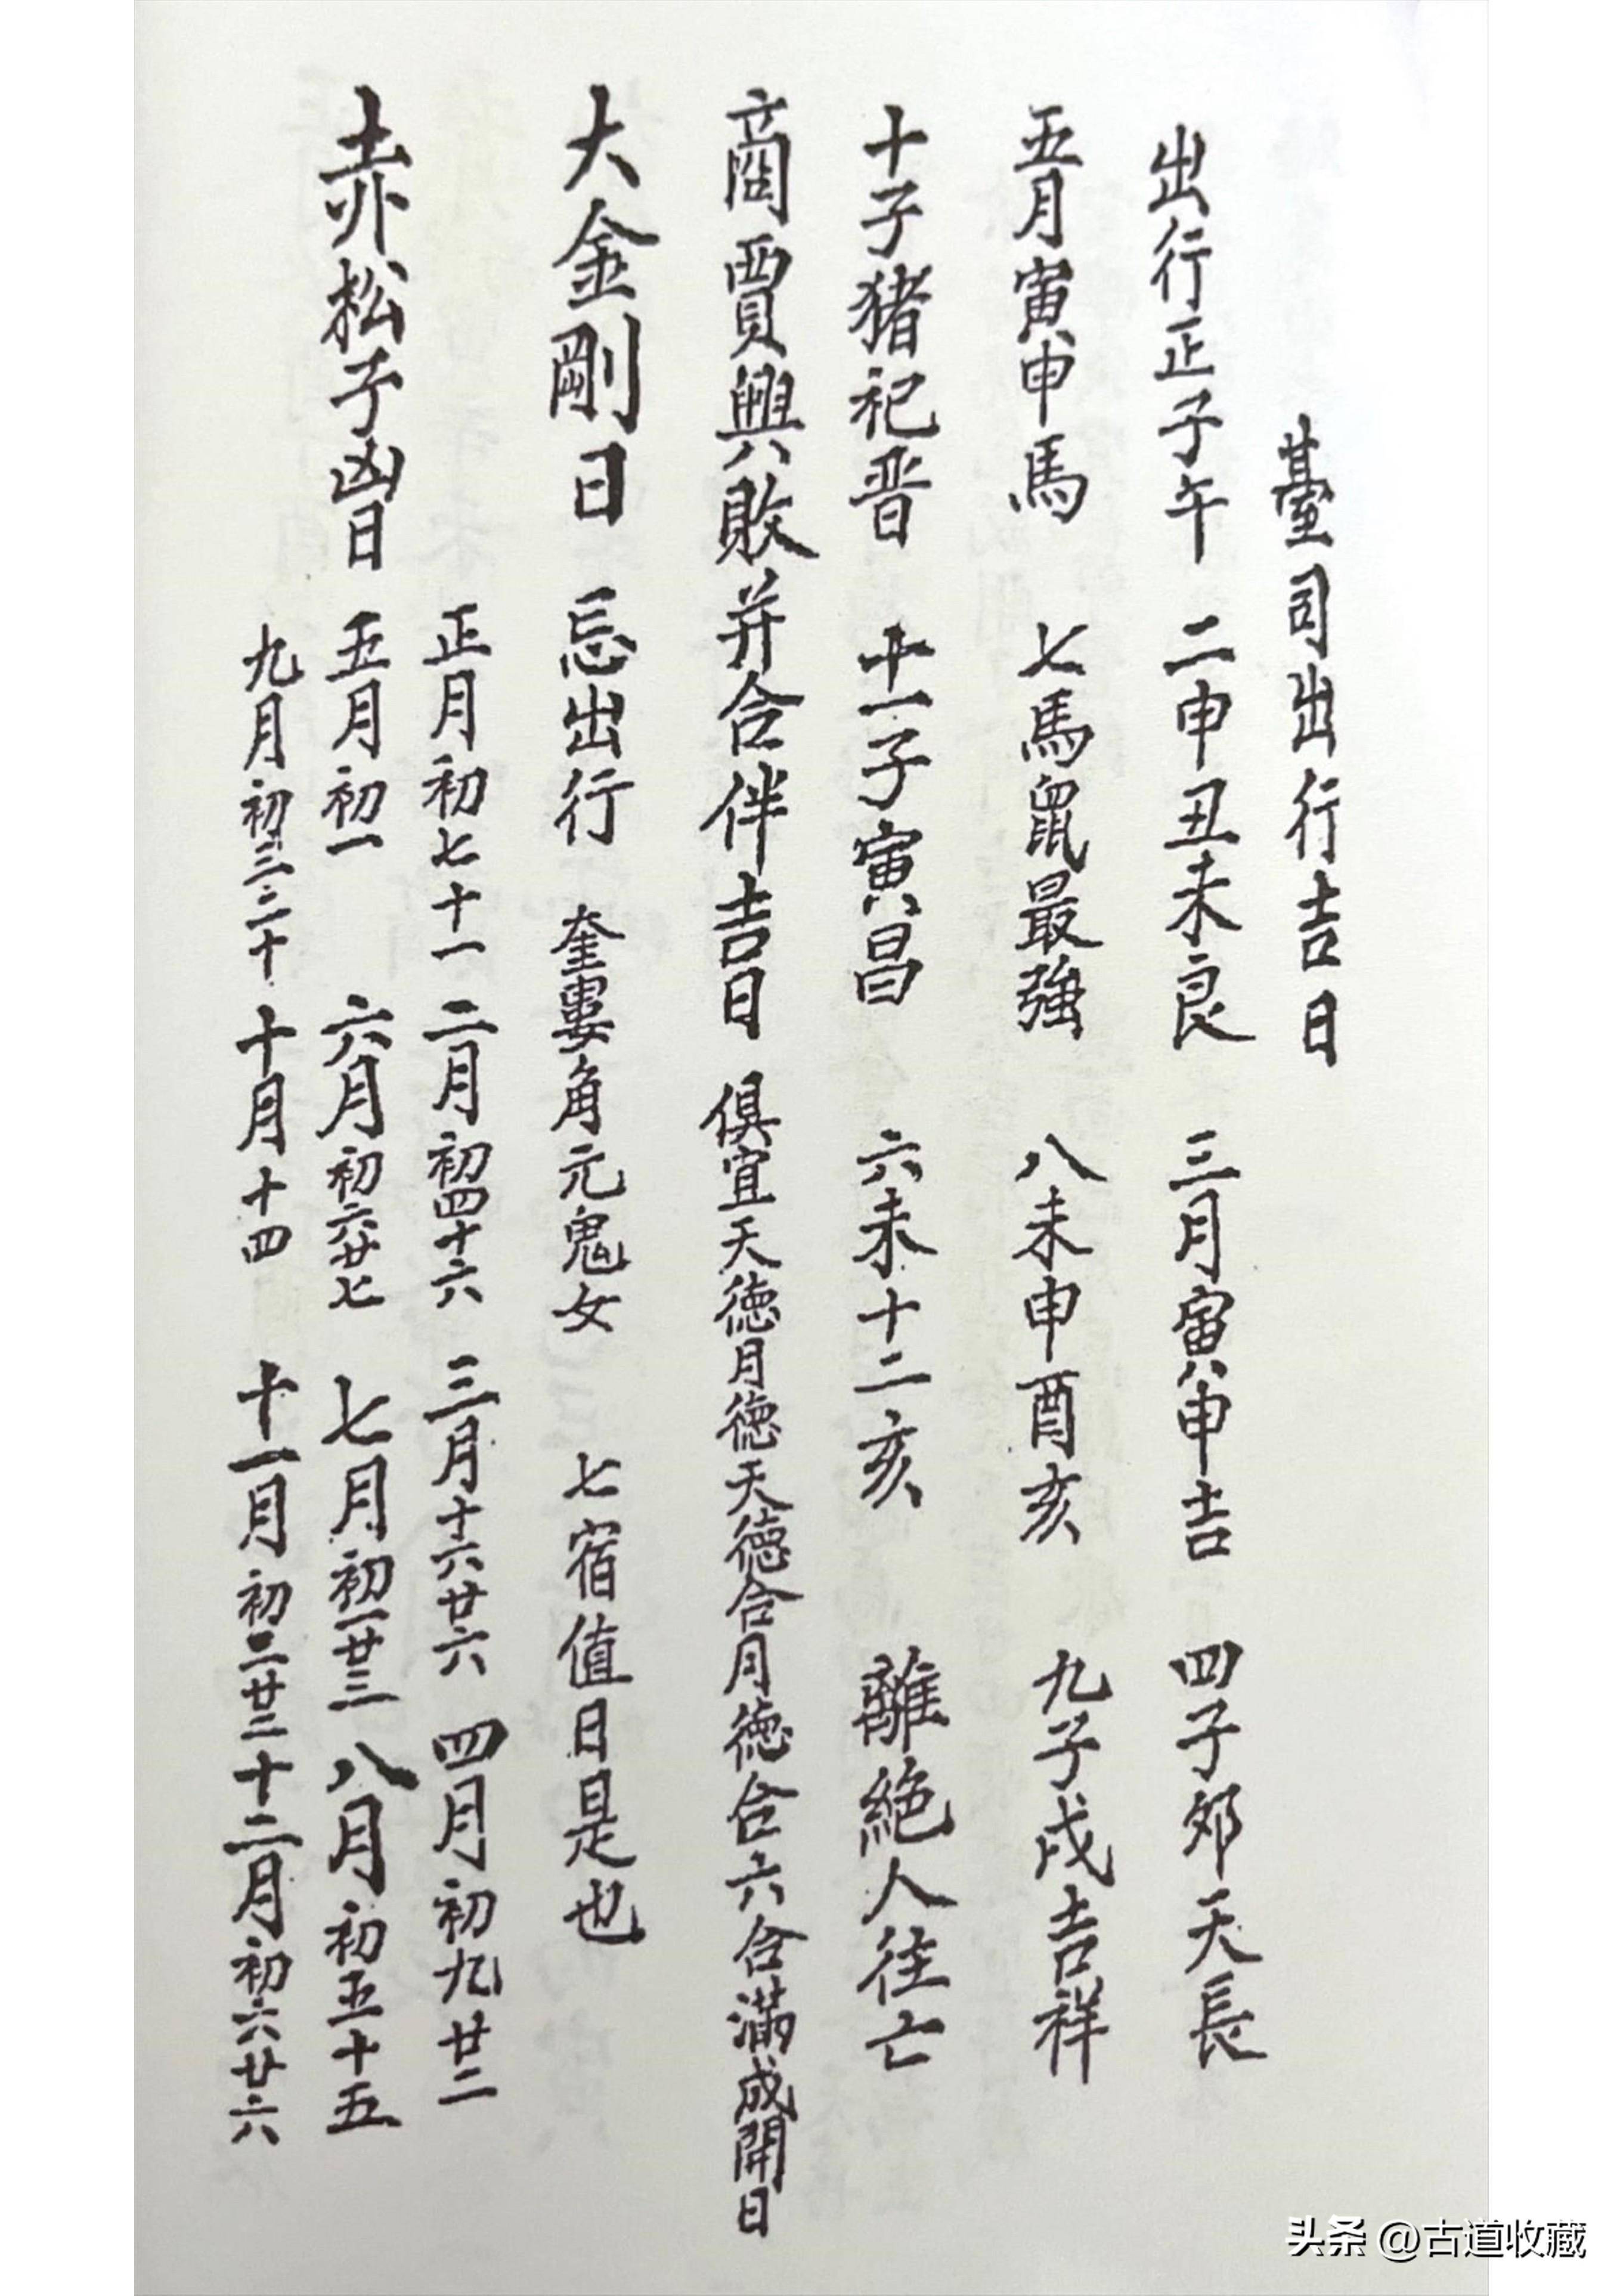 臺司出行吉日
出行正子午 二申丑未良 三月寅申吉 四子卯天長
五月寅申馬 七馬鼠最強 八未申酉亥 九子戌吉祥
十子猪祀晋 十一子寅昌 六未十二亥 離絶人往亡
商賈興敗并合伴吉日 俱宜天徳月徳天徳合月徳合六合滿成開日
大金剛日 忌出行 奎婁角元鬼女 七宿值日是也
赤松子凶日
正月初七十一 二月初四十六 三月十六廿六 四月初九廿二
五月初一 六月初六廿七 七月初一廿三 八月初五十五
九月初三二十 十月十四 十一月初二廿二 十二月初六廿六
头条 @古道收藏